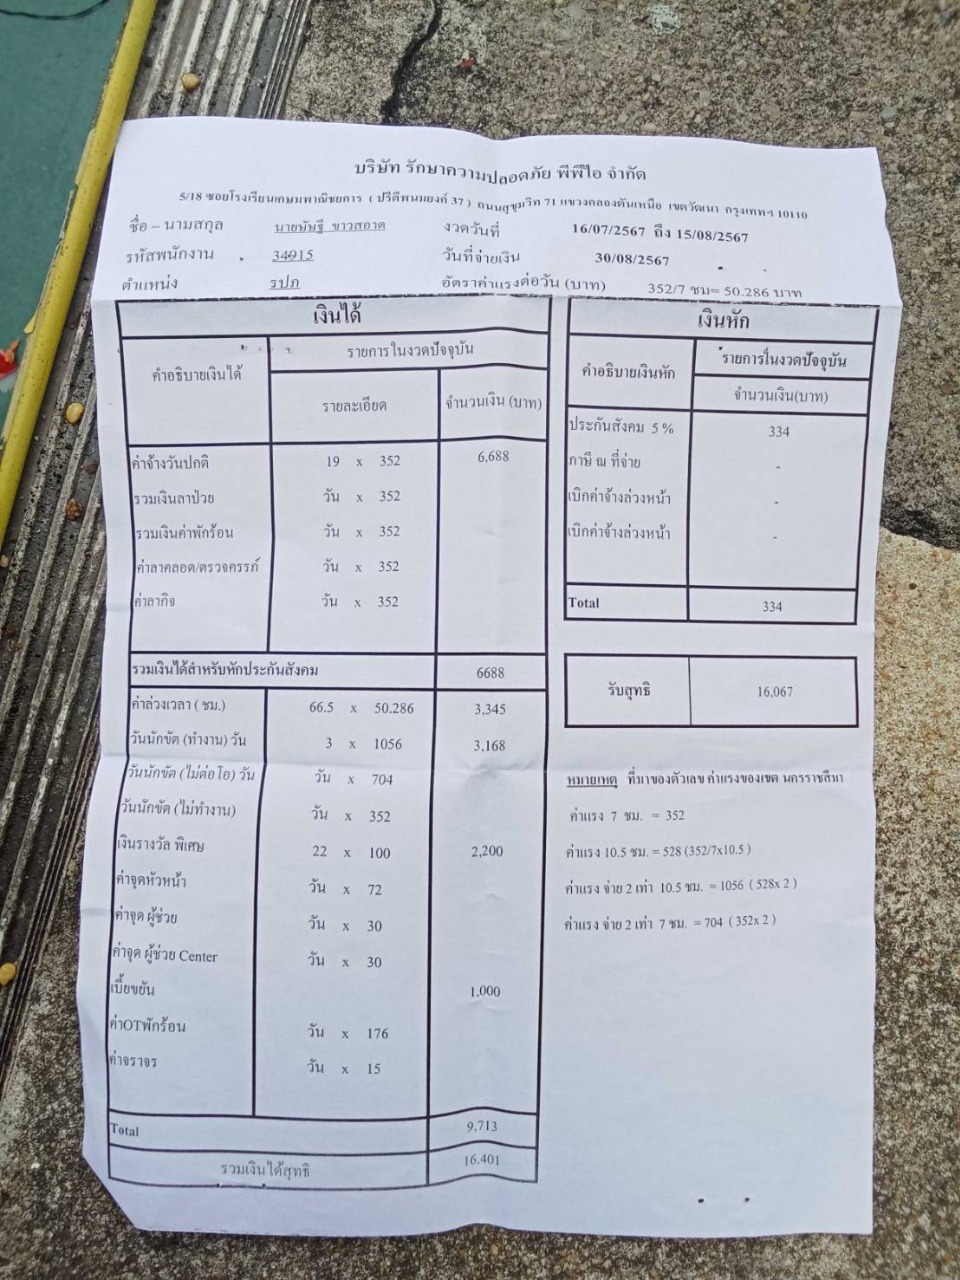 บริษัท รักษาความปลอดภัย พีพีไอ จำกัด
5/18 ซอยโรงเรียนเกษมพาณิชยการ ( ปรีดีพนมยงค์ 37 ) ถนนสุขุมวิท 71 แขวงคลองตันเหนือ เขตวัฒนา กรุงเทพฯ 10110
ชื่อ – นามสกุล นายพันธุ์ ขาวสอาด งวดวันที่ 16/07/2567 ถึง 15/08/2567
รหัสพนักงาน 34915 วันที่จ่ายเงิน 30/08/2567
ตำแหน่ง รปภ อัตราค่าแรงต่อวัน (บาท) 352/7 ชม= 50.286 บาท
เงินได้
คำอธิบายเงินได้ รายการในงวดปัจจุบัน
รายละเอียด จำนวนเงิน (บาท)
ค่าจ้างวันปกติ 19 x 352 6,688
รวมเงินลาป่วย วัน x 352
รวมเงินค่าพักร้อน วัน x 352
ค่าลาคลอด/ตรวจครรภ์ วัน x 352
ค่าลากิจ วัน x 352
รวมเงินได้สำหรับหักประกันสังคม 6688
ค่าล่วงเวลา ( ชม.) 66.5 x 50.286 3,345
วันนักขัต (ทำงาน) วัน 3 x 1056 3,168
วันนักขัต (ไม่ต่อโอ) วัน วัน x 704
วันนักขัต (ไม่ทำงาน) วัน x 352
เงินรางวัล พิเศษ 22 x 100 2,200
ค่าจุดหัวหน้า วัน x 72
ค่าจุด ผู้ช่วย วัน x 30
ค่าจุด ผู้ช่วย Center วัน x 30
เบี้ยขยัน 1,000
ค่าOTพักร้อน วัน x 176
ค่าจราจร วัน x 15
Total 9,713
รวมเงินได้สุทธิ 16,401
เงินหัก
คำอธิบายเงินหัก รายการในงวดปัจจุบัน
จำนวนเงิน(บาท)
ประกันสังคม 5 % 334
ภาษี ณ ที่จ่าย -
เบิกค่าจ้างล่วงหน้า -
เบิกค่าจ้างล่วงหน้า -
Total 334
รับสุทธิ 16,067
หมายเหตุ ที่มาของตัวเลข ค่าแรงของเขต นครราชสีมา
ค่าแรง 7 ชม. = 352
ค่าแรง 10.5 ชม. = 528 (352/7x10.5 )
ค่าแรง จ่าย 2 เท่า 10.5 ชม. = 1056 ( 528x 2 )
ค่าแรง จ่าย 2 เท่า 7 ชม. = 704 ( 352x 2 )